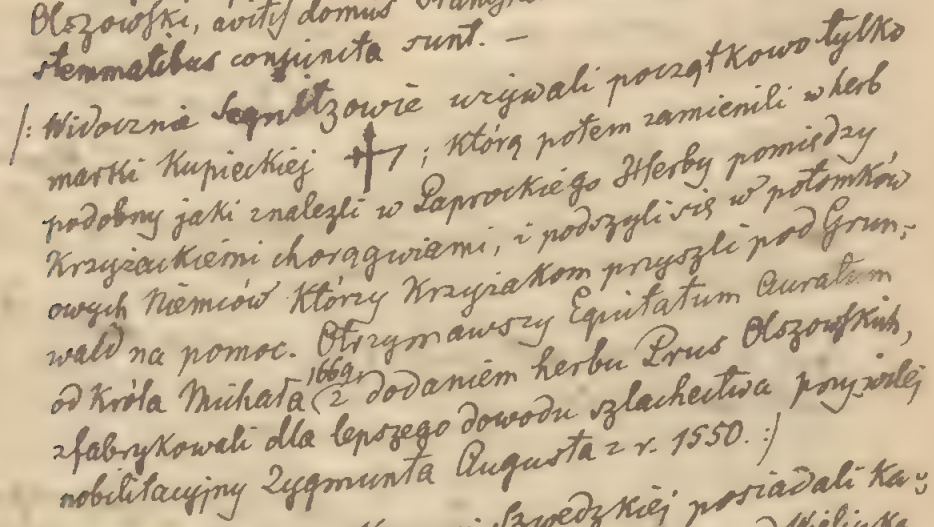 Olszowski, avitis domus
stemmatibus conjuncta sunt. —
/: Widocznie Segnitzowie używali początkowo tylko
marki Kupieckiéj ; którą potem zamienili w herb
podobny jaki znalezli w Paprockiego Herby pomiędzy
Krzyżackiemi chorągwiami, i podszyli się w potomków
owych Niemców Którzy Krzyżakom przyszli pod Grun-
wald na pomoc. Otrzymawszy Equitatum Auratum
od Króla Michała 1669 (z dodaniem herbu Prus Olszowskich,
zfabrykowali dla lepszego dowodu szlachectwa przywilej
nobilitacyjny Zygmunta Augusta z r. 1550. :/
Szwedzkiéj posiadali Ka-